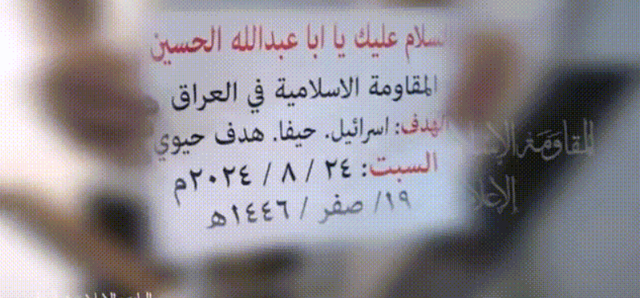 السلام عليك يا ابا عبدالله الحسين
المقاومة الاسلامية في العراق
الهدف: اسرائيل. حيفا. هدف حيوي
السبت: ٢٤ / ٨ / ٢٠٢٤م
١٩/ صفر / ١٤٤٦هـ
المقاومة
الإعلا